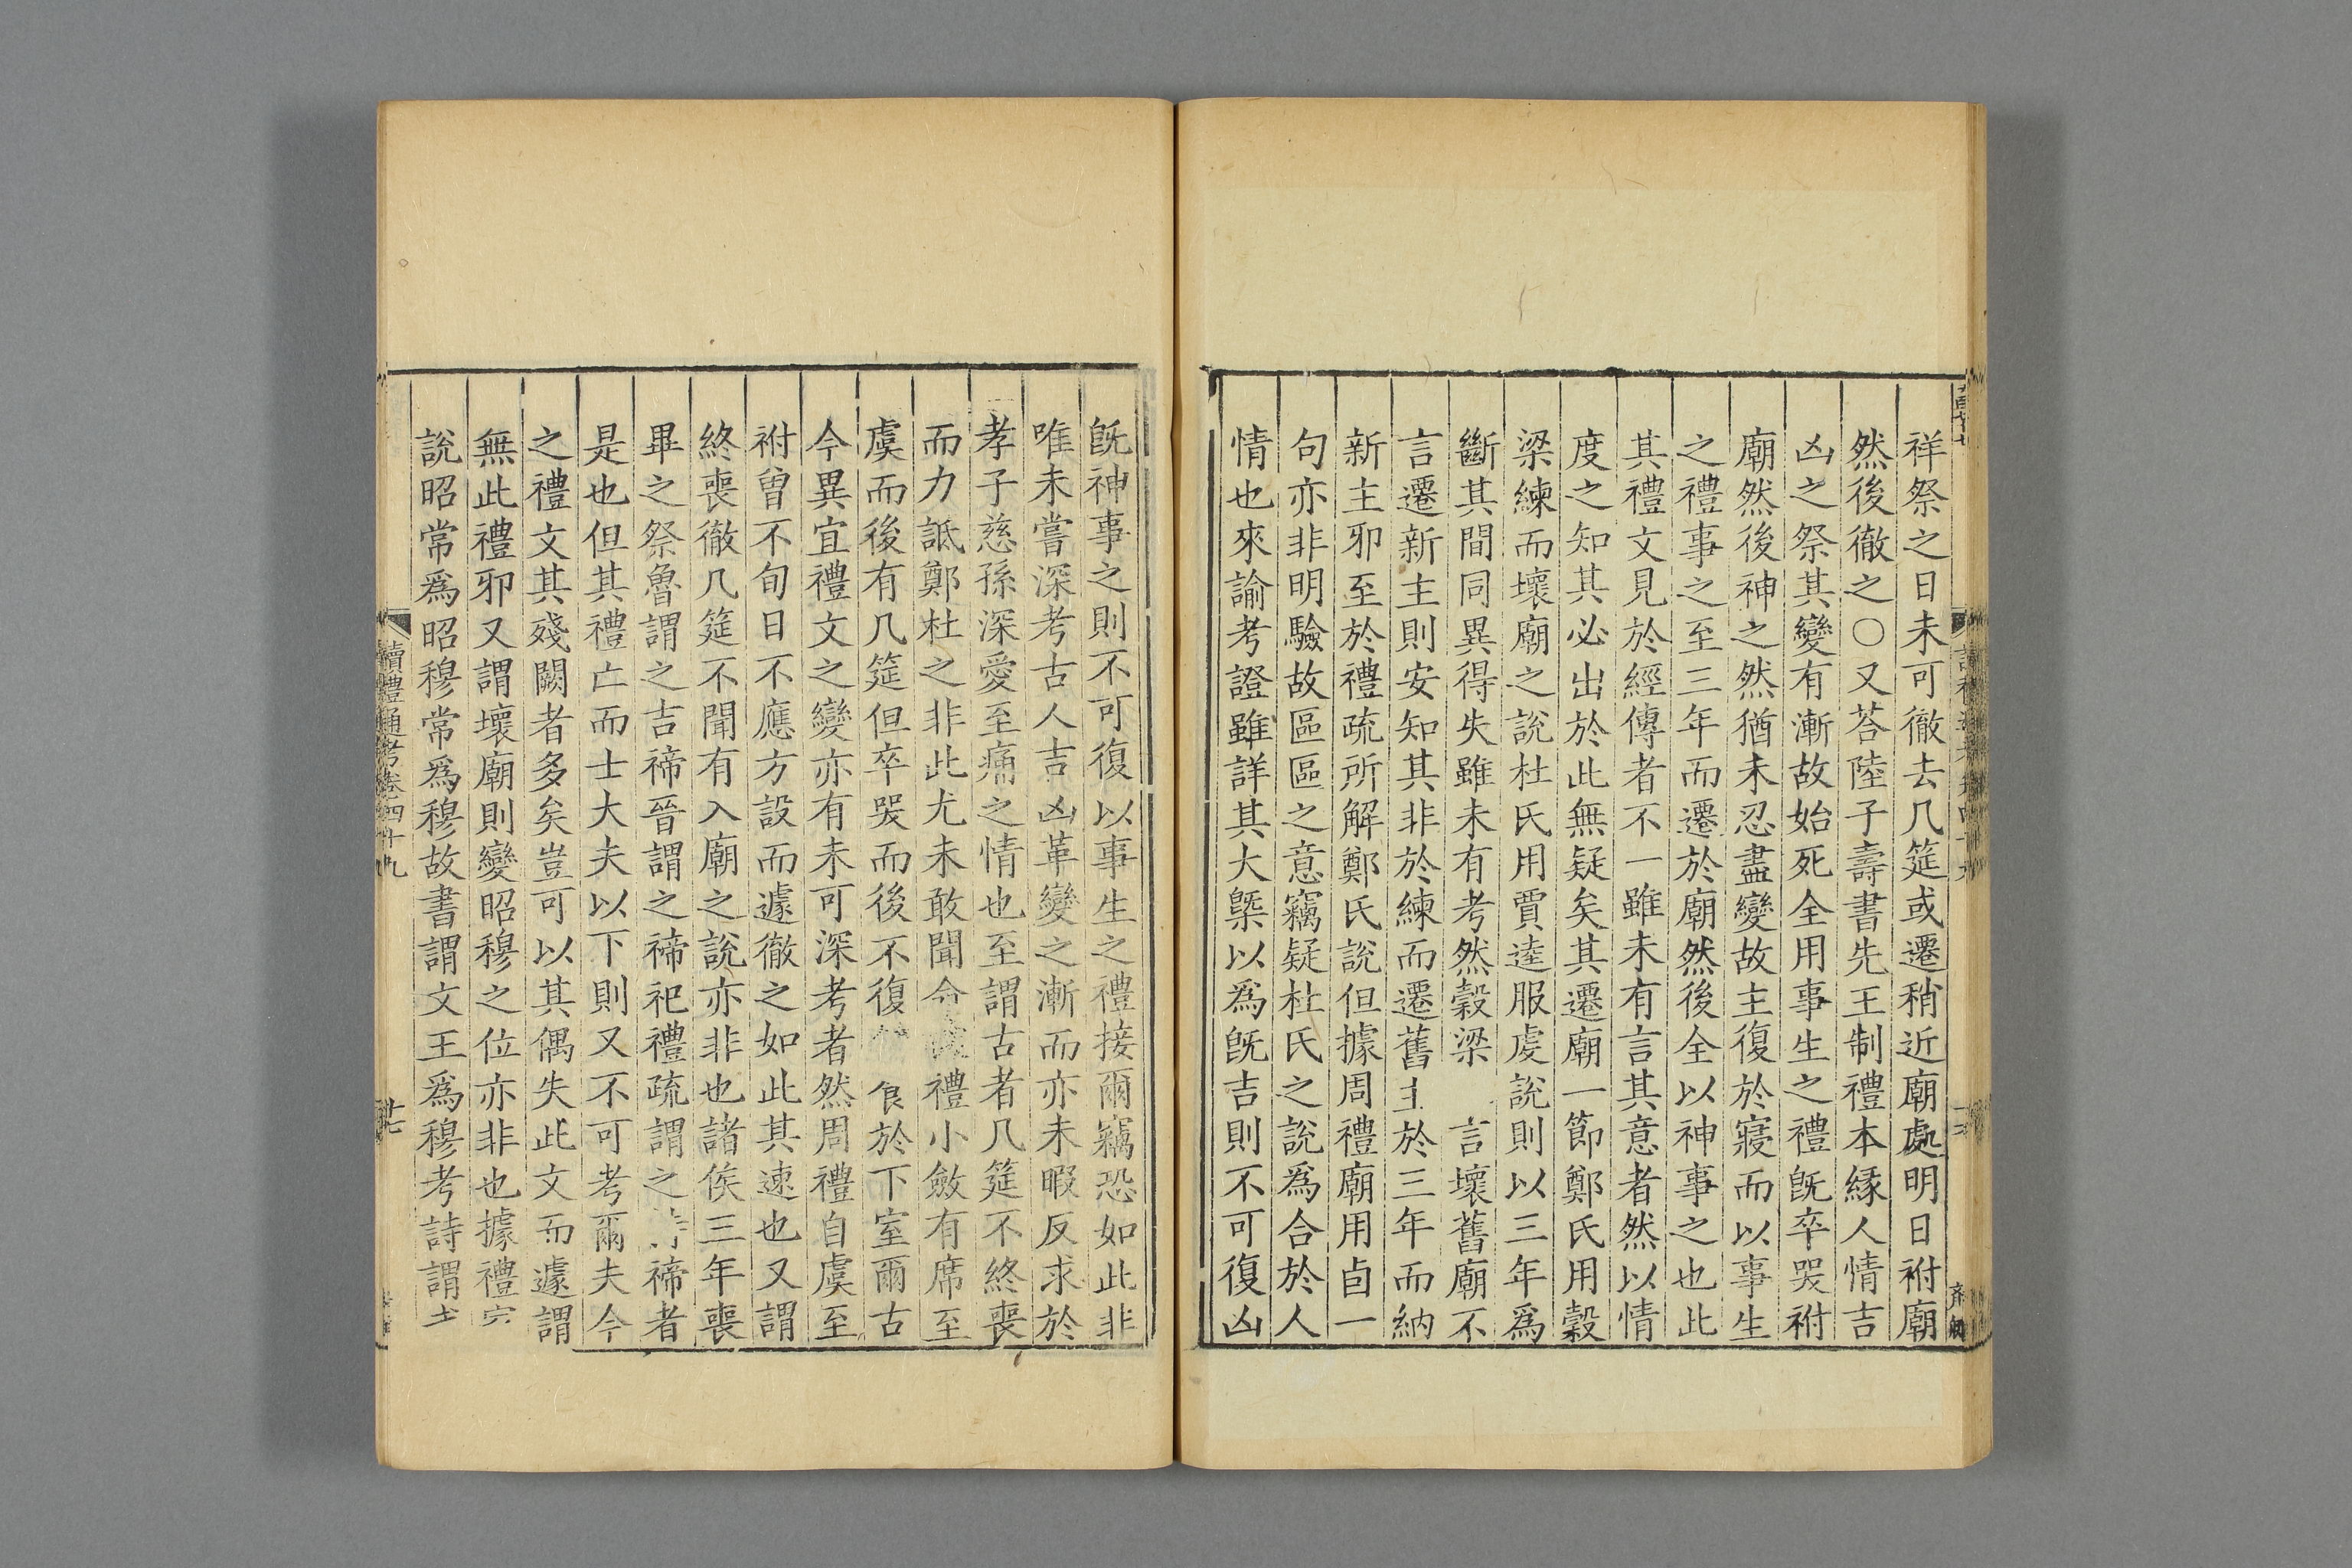 祥祭之日未可徹去几筵或遷稍近廟處明日祔廟
然後徹之○又荅陸子壽書先王制禮本緣人情吉
凶之祭其變有漸故始死全用事生之禮旣卒哭祔
廟然後神之然猶未忍盡變故主復於寢而以事生
之禮事之至三年而遷於廟然後全以神事之也此
其禮文見於經傳者不一雖未有言其意者然以情
度之知其必出於此無疑矣其遷廟一節鄭氏用穀
梁練而壞廟之說杜氏用賈逵服虔說則以三年爲
斷其間同異得失雖未有考然穀梁 言壞舊廟不
言遷新主則安知其非於練而遷舊主於三年而納
新主邪至於禮疏所解鄭氏說但據周禮廟用卣一
句亦非明驗故區區之意竊疑杜氏之說爲合於人
情也來諭考證雖詳其大槩以爲旣吉則不可復凶
旣神事之則不可復以事生之禮接爾竊恐如此非
唯未嘗深考古人吉凶革變之漸而亦未暇反求於
孝子慈孫深愛至痛之情也至謂古者几筵不終喪
而力詆鄭杜之非此尤未敢聞命 禮小斂有席至
虞而後有几筵但卒哭而後不復 食於下室爾古
今異宜禮文之變亦有未可深考者然周禮自虞至
祔曾不旬日不應方設而遽徹之如此其速也又謂
終喪徹几筵不聞有入廟之說亦非也諸侯三年喪
畢之祭魯謂之吉禘晉謂之禘祀禮疏謂之 禘者
是也但其禮亡而士大夫以下則又不可考爾夫今
之禮文其殘闕者多矣豈可以其偶失此文而遽謂
無此禮邪又謂壞廟則變昭穆之位亦非也據禮
說昭常爲昭穆常爲穆故書謂文王爲穆考詩謂
讀禮通考卷四十九